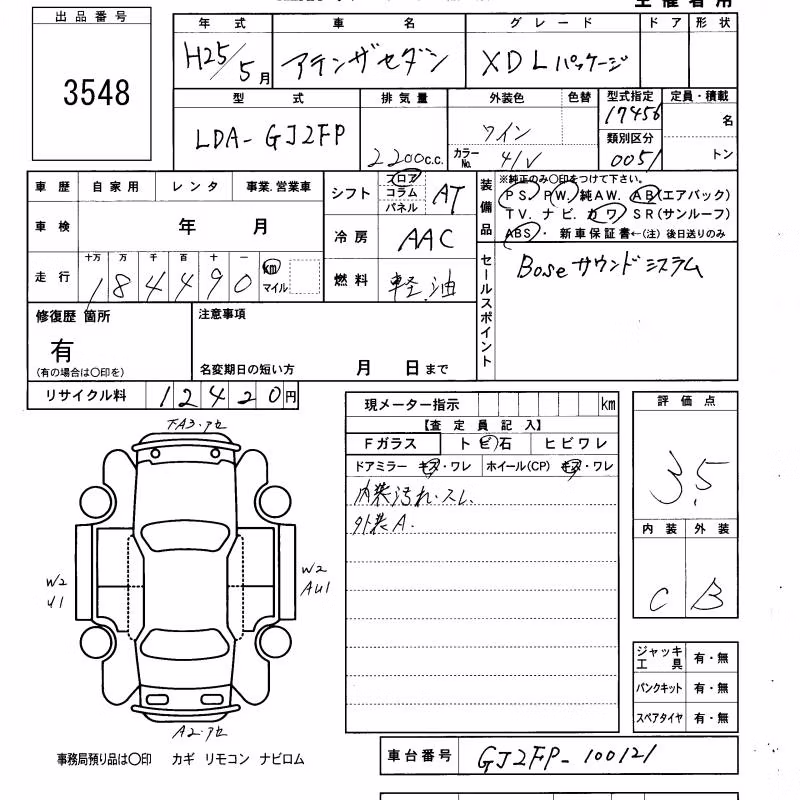 出品番号
3548
年式 車名 グレード ドア 形状
H25/5月 アテンザセダン XDLパッケージ
型式 排気量 外装色 色替 型式指定 定員・積載
LDA-GJ2FP 2200c.c. ワイン 17456 名
カラーNo. 41V 類別区分 0051 トン
車歴 自家用 レンタ 事業.営業車
車検 年 月
走行 十万 万 千 百 十 一
184490 km マイル
シフト フロア コラム パネル AT
冷房 AAC
燃料 軽.油
装備品
※純正のみ○印をつけて下さい。
PS. PW. 純AW. AB(エアバック)
TV. ナビ. カワ SR(サンルーフ)
ABS・ 新車保証書←(注) 後日送りのみ
セールスポイント
Boseサウンドシステム
修復歴 箇所
有
(有の場合は○印を)
注意事項
名変期日の短い方 月 日まで
リサイクル料 12420円
現メーター指示 km
【査定員記入】
Fガラス ト ビ 石 ヒビワレ
ドアミラー キズ・ワレ ホイール(CP) キズ・ワレ
内装汚れ.スレ.
外装A.
評価点
3.5
内装 外装
C B
ジャッキ工具 有・無
パンクキット 有・無
スペアタイヤ 有・無
FA3.アセ
W2
U1
W2
AU1
A2.アセ
事務局預り品は○印 カギ リモコン ナビロム
車台番号 GJ2FP-100121